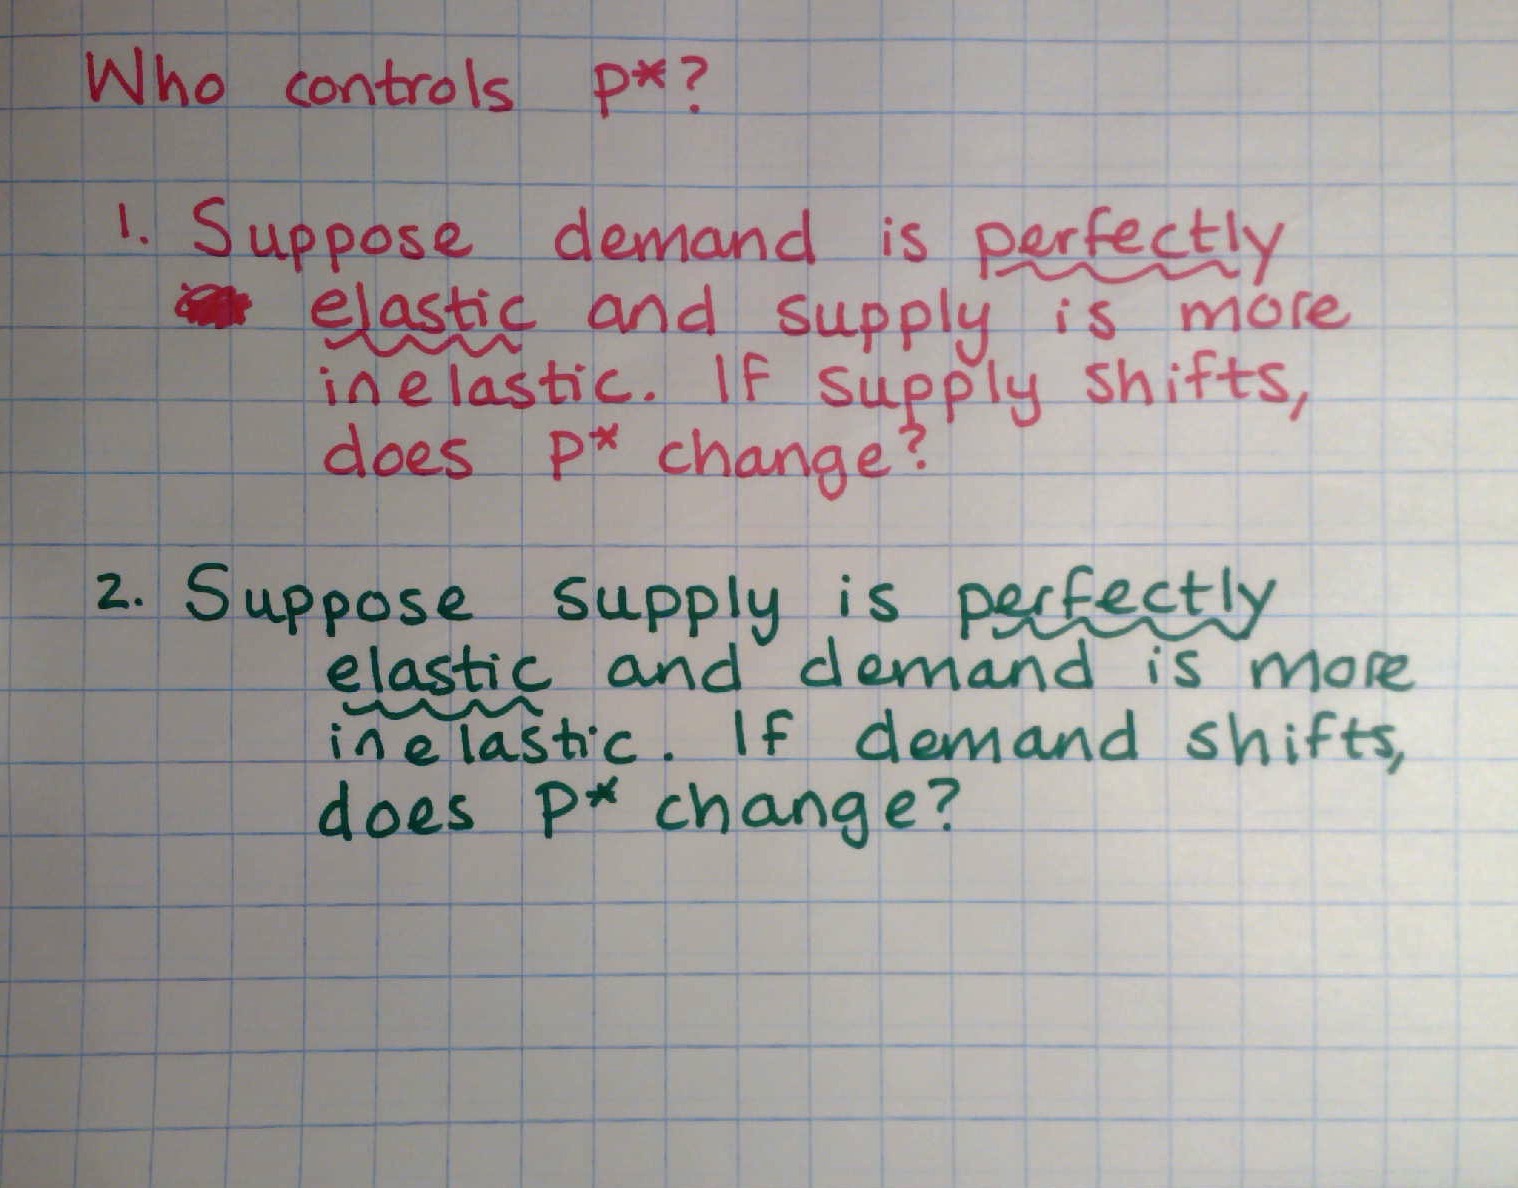 Who controls P*?
1. Suppose demand is perfectly
elastic and supply is more
inelastic. If supply shifts,
does P* change?
2. Suppose supply is perfectly
elastic and demand is more
inelastic. If demand shifts,
does P* change?